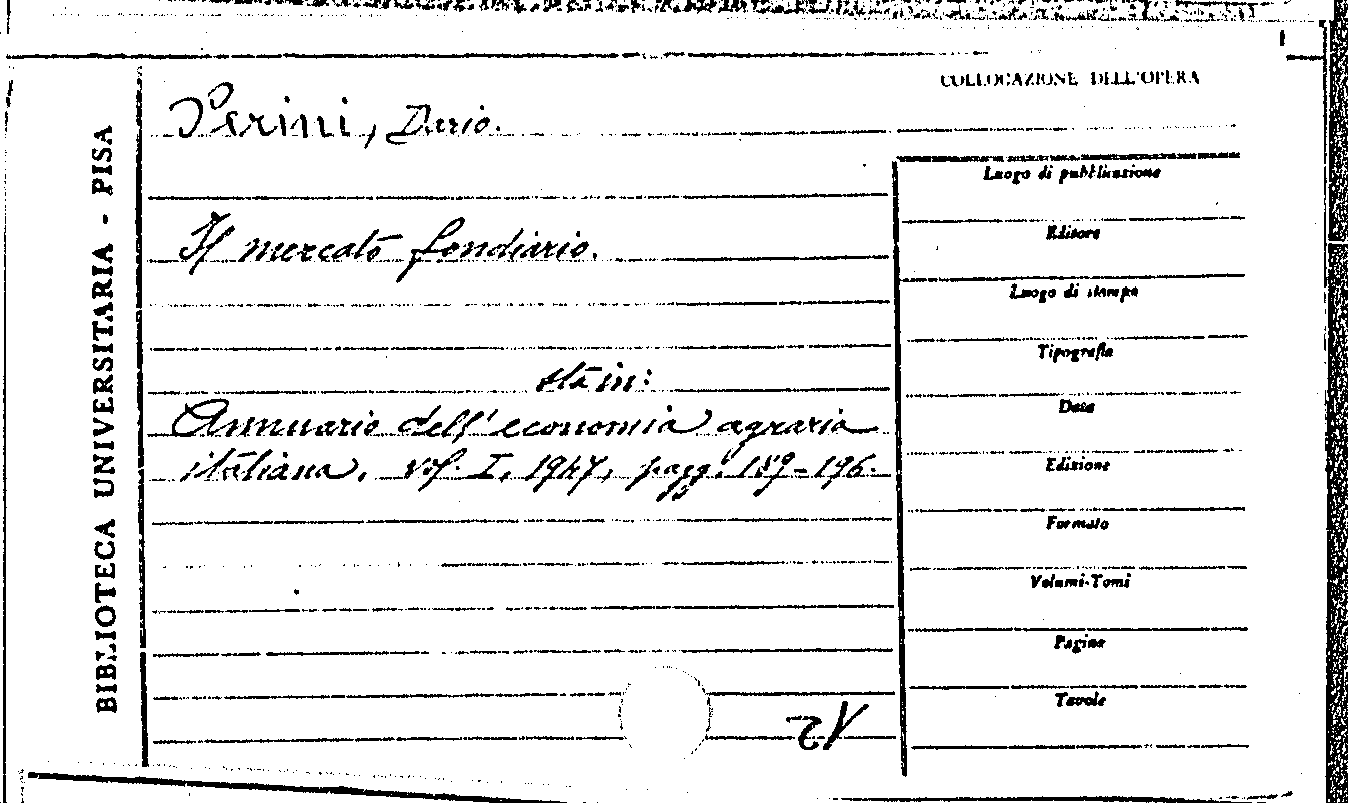 COLLOCAZIONE DELL'OPERA
Perini, Dario.
Il mercato fondiario.
sta in:
Annuario dell'economia agraria
italiana. vol. I, 1947, pagg. 189-196.
BIBLIOTECA UNIVERSITARIA - PISA
Luogo di pubblicazione
Editore
Luogo di stampa
Tipografia
Data
Edizione
Formato
Volumi-Tomi
Pagine
Tavole